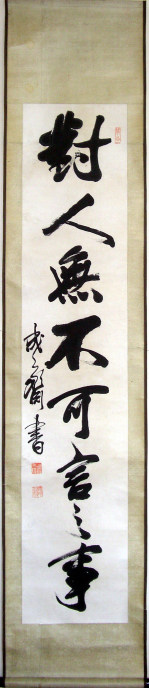 對人無不可言之事
書